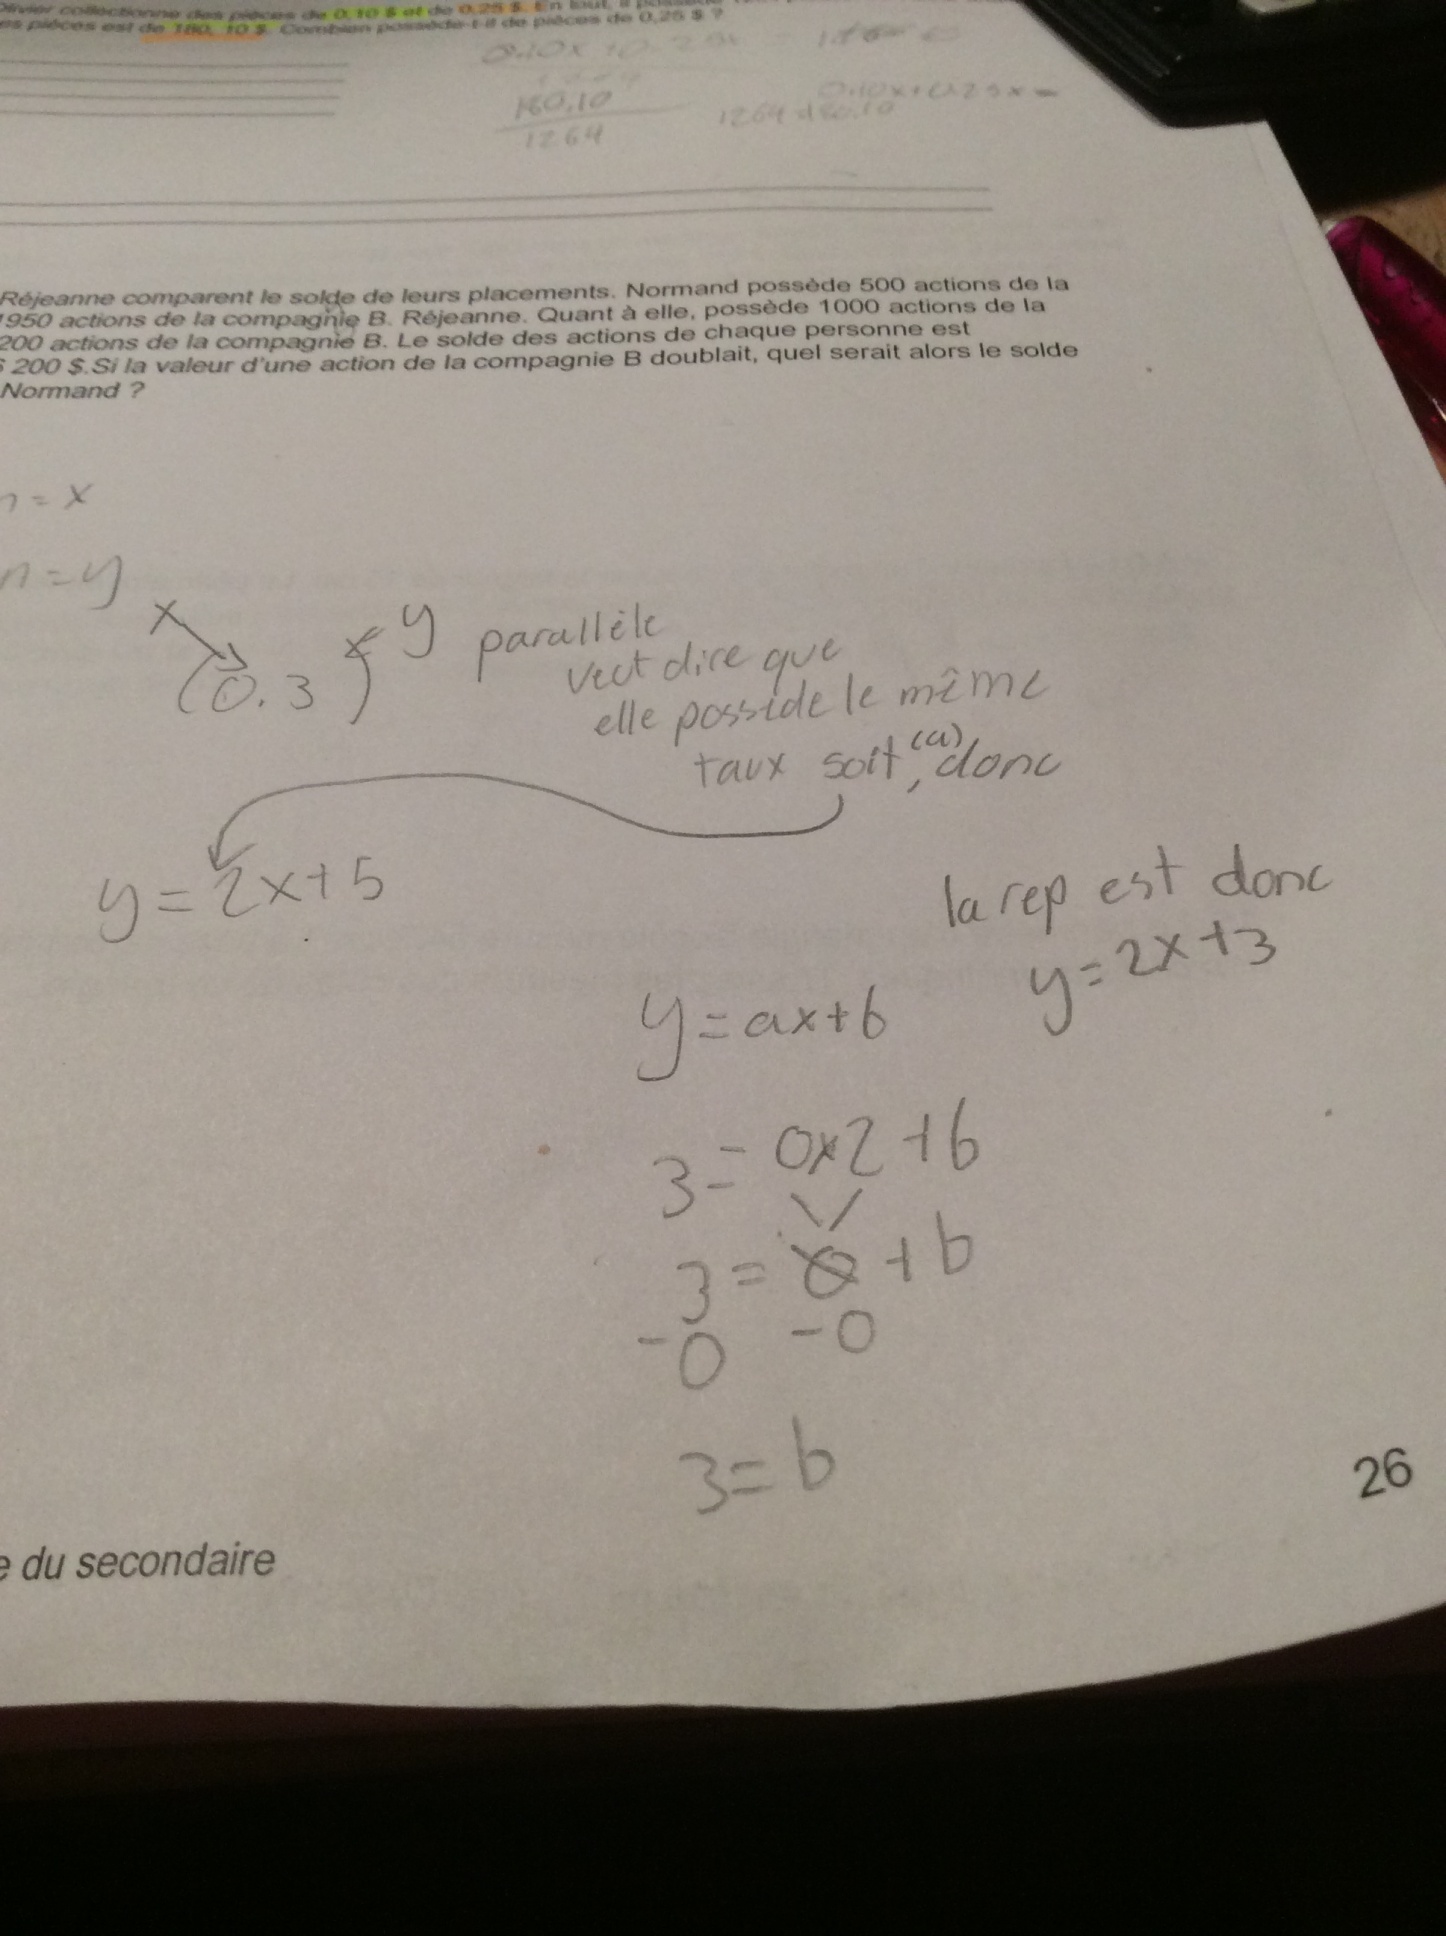 Olivier collectionne des pièces de 0,10 $ et de 0,25 $. En tout, il possède
es pièces est de 180, 10 $. Combien possède-t-il de pièces de 0,25 $ ?
180.10
1264
1264 180.10
Réjeanne comparent le solde de leurs placements. Normand possède 500 actions de la
1950 actions de la compagnie B. Réjeanne. Quant à elle, possède 1000 actions de la
200 actions de la compagnie B. Le solde des actions de chaque personne est
200 $.Si la valeur d'une action de la compagnie B doublait, quel serait alors le solde
Normand ?
n = x
n = y
x
y
(0.3)
parallèle
veut dire que
elle possède le même
taux soit (a), donc
y = 2x+5
la rep est donc
y = 2x+3
y = ax+b
3 = 0x2+b
3 = 0+b
-0 -0
3 = b
26
e du secondaire